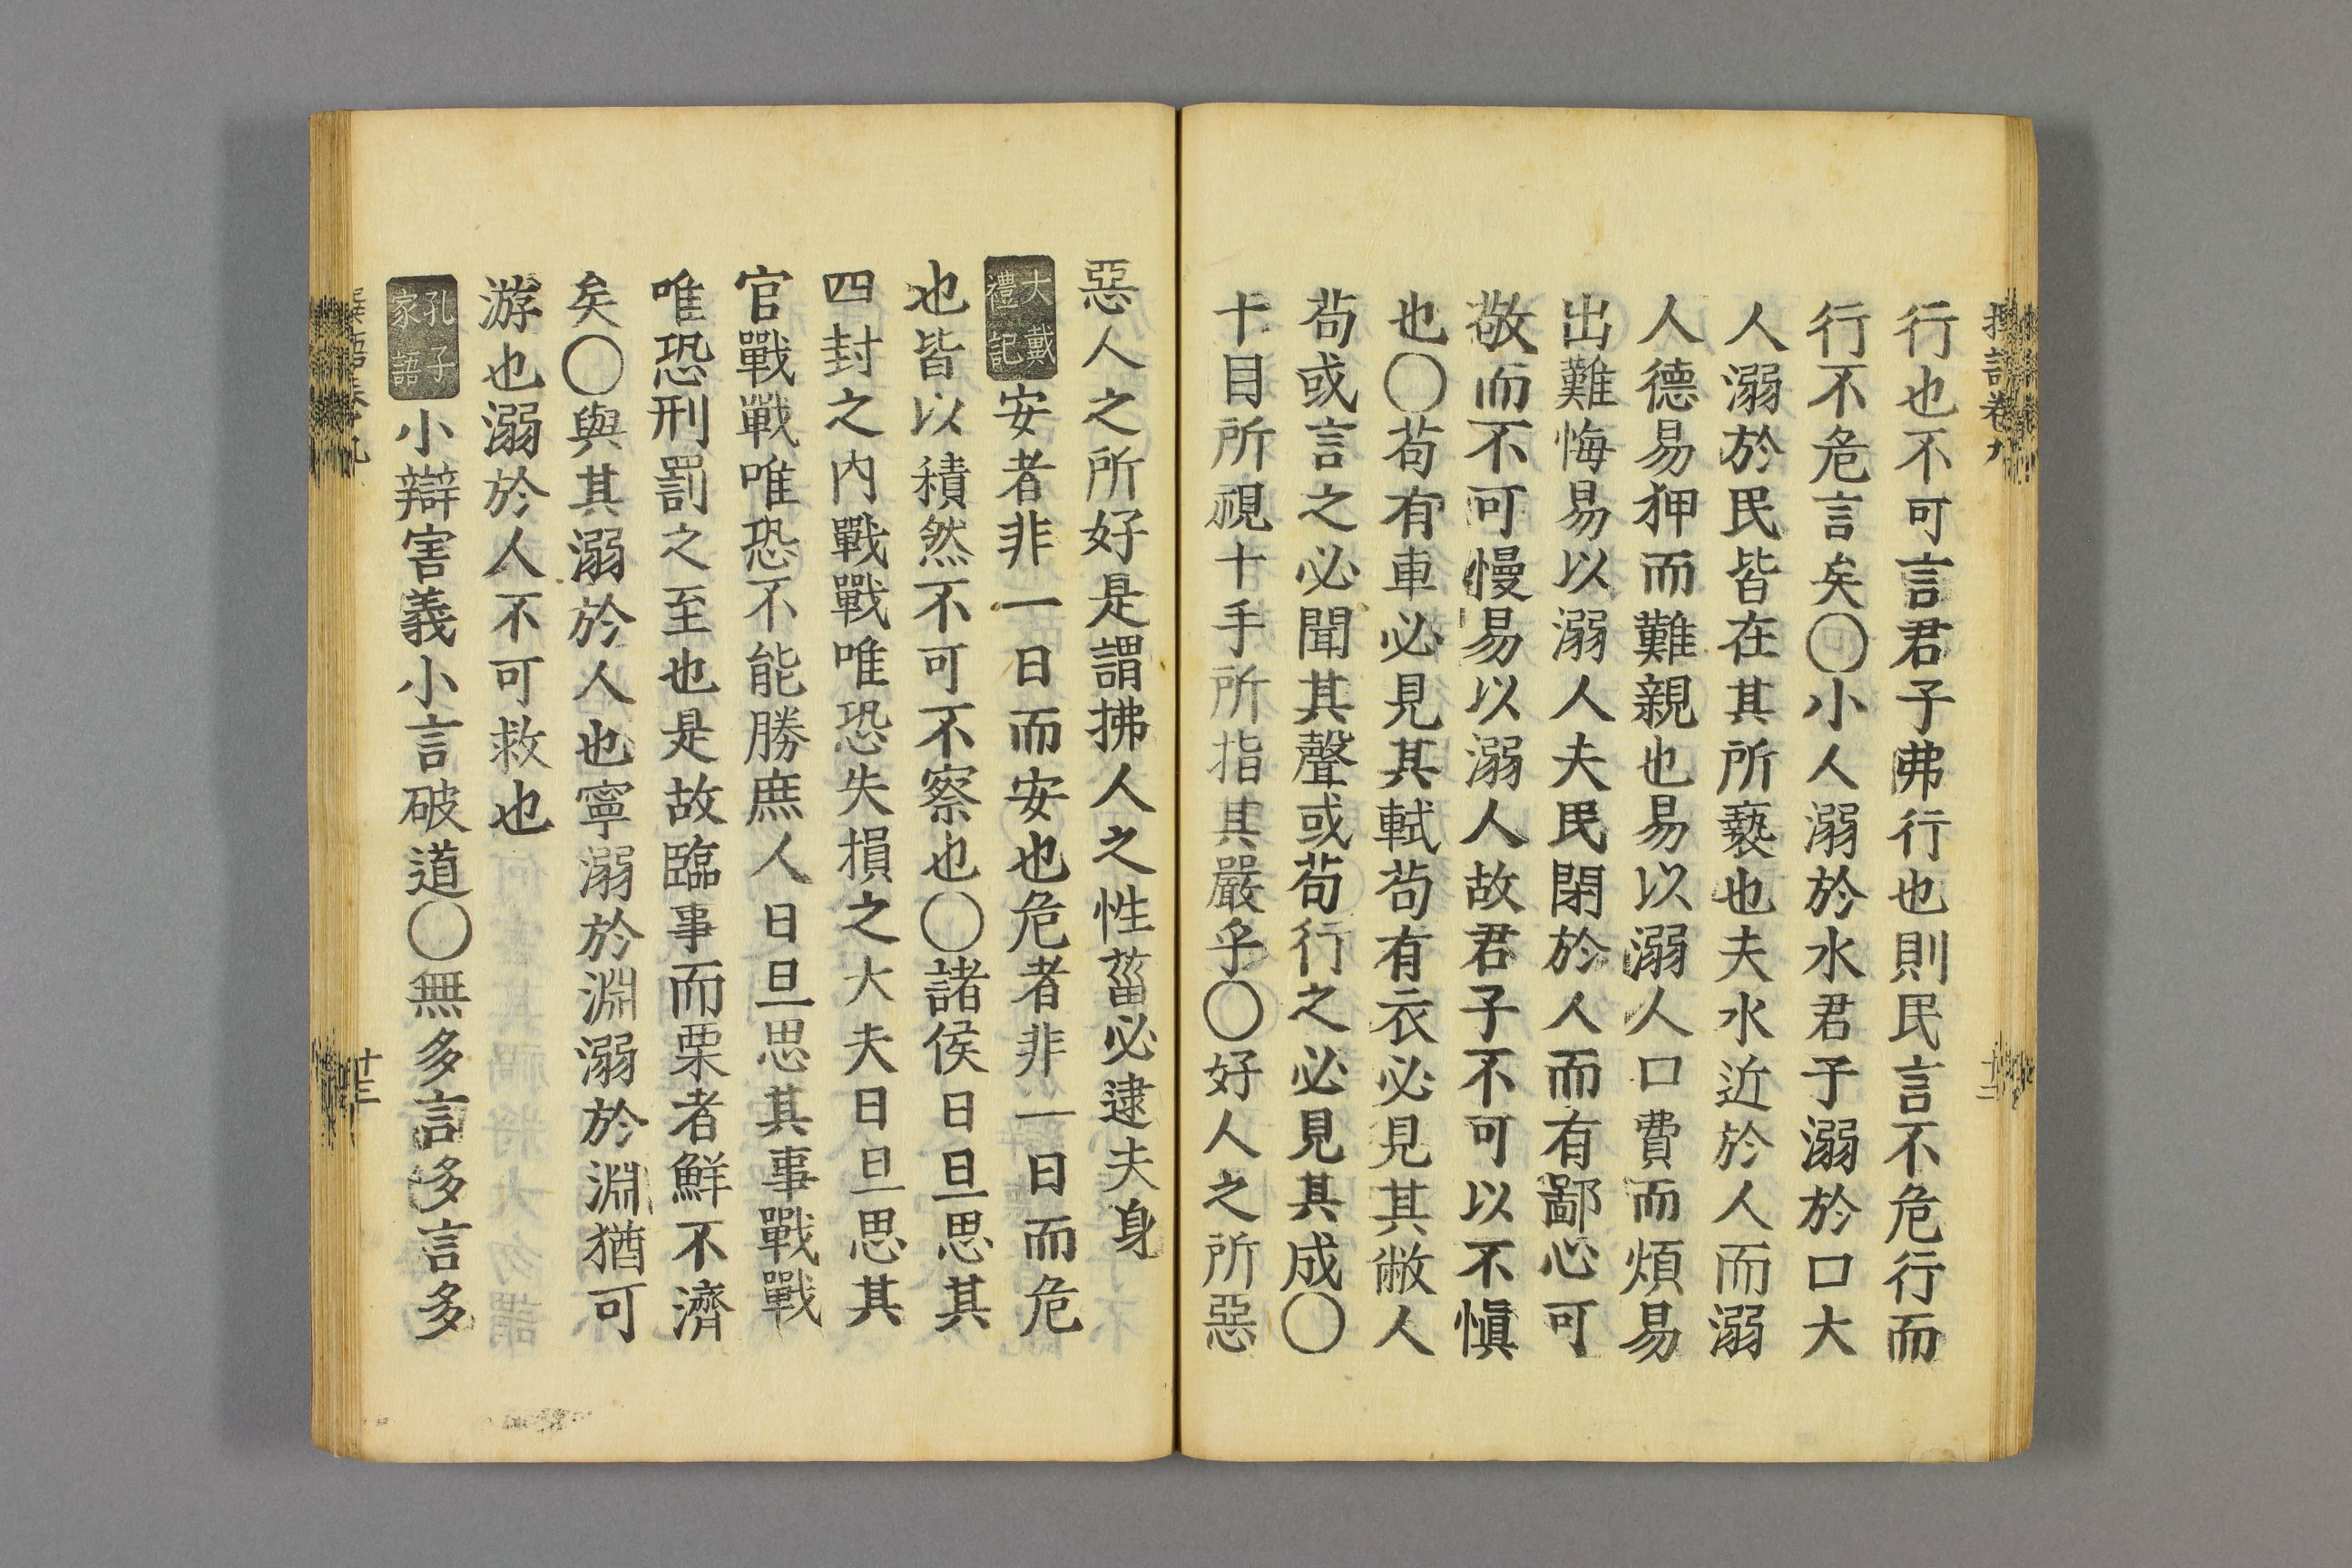 行也不可言君子弗行也則民言不危行而
行不危言矣〇小人溺於水君子溺於口大
人溺於民皆在其所褻也夫水近於人而溺
人德易狎而難親也易以溺人口費而煩易
出難悔易以溺人夫民閉於人而有鄙心可
敬而不可慢易以溺人故君子不可以不愼
也〇苟有車必見其軾苟有衣必見其敝人
苟或言之必聞其聲或苟行之必見其成〇
十目所視十手所指其嚴乎〇好人之所惡
惡人之所好是謂拂人之性菑必逮夫身
大戴禮記 安者非一日而安也危者非一日而危
也皆以積然不可不察也〇諸侯日旦思其
四封之内戰戰唯恐失損之大夫日旦思其
官戰戰唯恐不能勝庶人日旦思其事戰戰
唯恐刑罰之至也是故臨事而栗者鮮不濟
矣〇與其溺於人也寧溺於淵溺於淵猶可
游也溺於人不可救也
孔子家語 小辯害義小言破道〇無多言多言多
十三